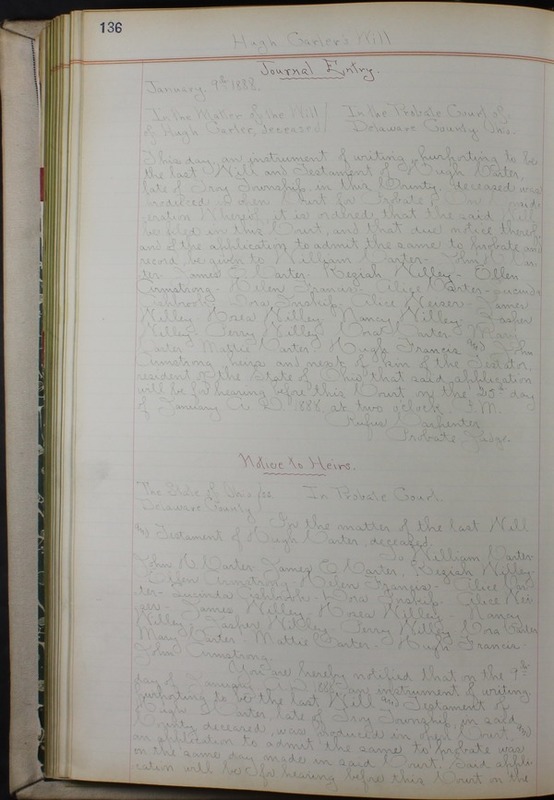 136
Hugh Carter's Will
Journal Entry.
January 9th 1888.
In the Matter of the Will / In the Probate Court of
of Hugh Carter, deceased / Delaware County Ohio.
This day, an instrument of writing, purporting to be
the last Will and Testament of Hugh Carter,
late of Troy Township, in this County, deceased was
produced in open Court for Probate
eration whereof, it is ordered, that the said Will
be filed in this Court, and that due notice thereof
and of the application to admit the same to probate and
record be given to William Carter - John
ter James Carter - Keziah Willey - Ellen
Armstrong - Helen Francis - Alice Carter - Lucinda
Ashbrook - Dora Inskip - Alice Neiser - James
Willey Hosea Willey Nancy Willey - Tasker
Willey - Perry Willey Ora Carter Mary
Carter Mattie Carter Hugh Francis and John
Armstrong heirs and next of kin of the testator,
resident of the State of Ohio that said application
will be for hearing before this Court on the 25th day
of January A. D. 1888 at two o'clock P. M.
Rufus Carpenter
Probate Judge.
Notice to Heirs.
The State of Ohio ss. In Probate Court.
Delaware County
In the matter of the last Will
and Testament of Hugh Carter, deceased.
To William Carter
John Carter James Carter, Keziah Willey-
Ellen Armstrong - Helen Francis - Alice Car
ter - Lucinda Ashbrook - Dora Inskip - Alice Nei
ser - James Willey - Hosea Willey - Nancy
Willey - Tasker Willey - Perry Willey Ora Carter
Mary Carter - Mattie Carter - Hugh Francis -
John Armstrong.
You are hereby notified that on the 9th
day of January A. D. 1888 an instrument of writing
purporting to be the last Will and Testament of
Hugh Carter, late of Troy Township, in said
County, deceased, was produced in open Court and
an application to admit the same to probate was
on the same day made in said Court. Said appli
cation will be for hearing before this Court on the